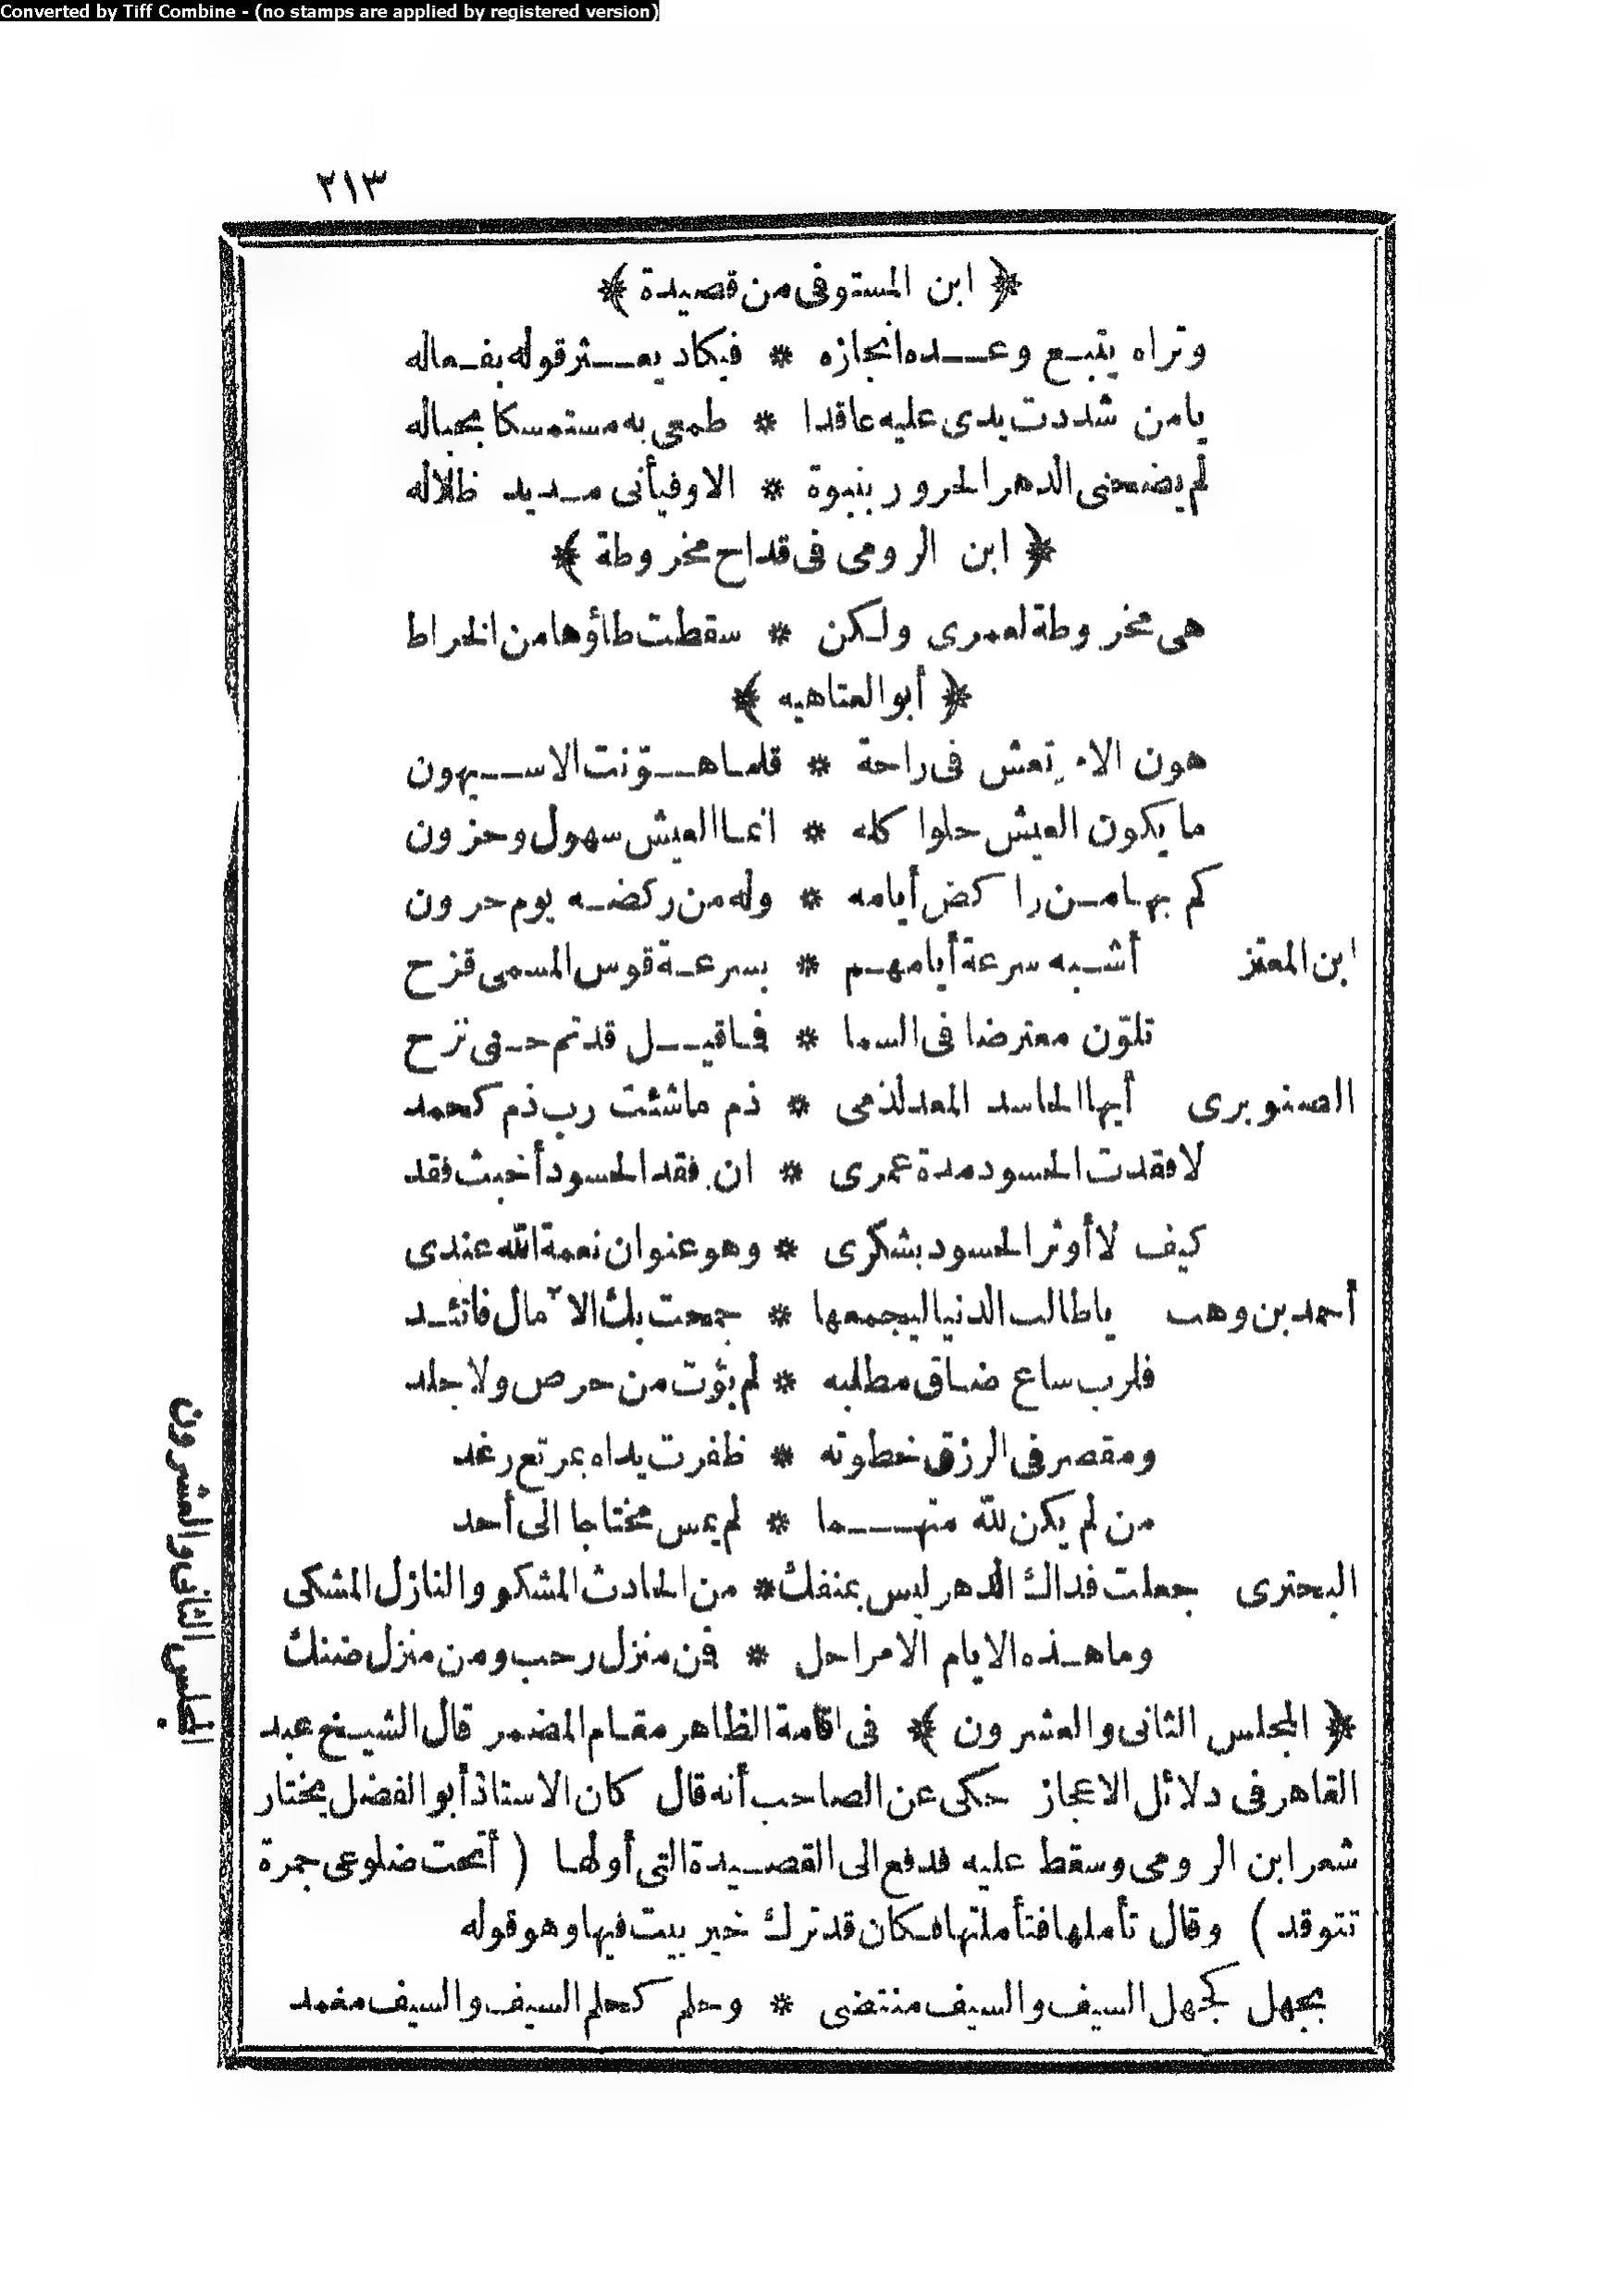 Converted by Tiff Combine - (no stamps are applied by registered version)
٢١٣
﴿ ابن المستوفى من قصيدة ﴾
وتراه يتبع وعده انجازه * فيكاد يعثر قوله بفعاله
يا من شددت يدى عليه عاقدا * طمعى به مستمسكا بحباله
لم يضحنى الدهر الحرور بنبوة * الا وفيأنى مديد ظلاله
﴿ ابن الرومى فى قداح مخروطة ﴾
هى مخروطة لعمرى ولكن * سقطت طاؤها من الخراط
﴿ أبو العتاهيه ﴾
هون الامر تعش فى راحة * قلما هوّنت الا سيهون
ما يكون العيش حلوا كله * انما العيش سهول وحزون
كم بها من راكض أيامه * وله من ركضه يوم حرون
ابن المعتز أشبه سرعة أيامهم * بسرعة قوس المسمى قزح
تلوّن معترضا فى السما * فما قيل قد تم حتى نزح
الصنوبرى أيها الحاسد المعد لذمى * ذم ما شئت رب ذم كحمد
لا فقدت الحسود مدة عمرى * ان فقد الحسود أخبث فقد
كيف لا أوثر الحسود بشكرى * وهو عنوان نعمة الله عندى
أحمد بن وهب يا طالب الدنيا ليجمعها * جمحت بك الآمال فاتئد
فلرب ساع ضاق مطلبه * لم يؤت من حرص ولا جلد
ومقصر فى الرزق خطوته * ظفرت يداه بمرتع رغد
من لم يكن لله متهما * لم يمس محتاجا الى أحد
البحترى جعلت فداك الدهر ليس بمنفك * من الحادث المشكو والنازل المشكى
وما هذه الايام الا مراحل * فمن منزل رحب ومن منزل ضنك
﴿ المجلس الثانى والعشرون ﴾ فى اقامة الظاهر مقام المضمر قال الشيخ عبد
القاهر فى دلائل الاعجاز حكى عن الصاحب أنه قال كان الاستاذ أبو الفضل يختار
شعر ابن الرومى وسقط عليه فدفع الى القصيدة التى أولها ( أتحت ضلوعى جمرة
تتوقد ) وقال تأملها فتأملتها فكان قد ترك خير بيت فيها وهو قوله
بجهل كجهل السيف والسيف منتضى * وحلم كحلم السيف والسيف مغمد
المجلس الثانى والعشرون